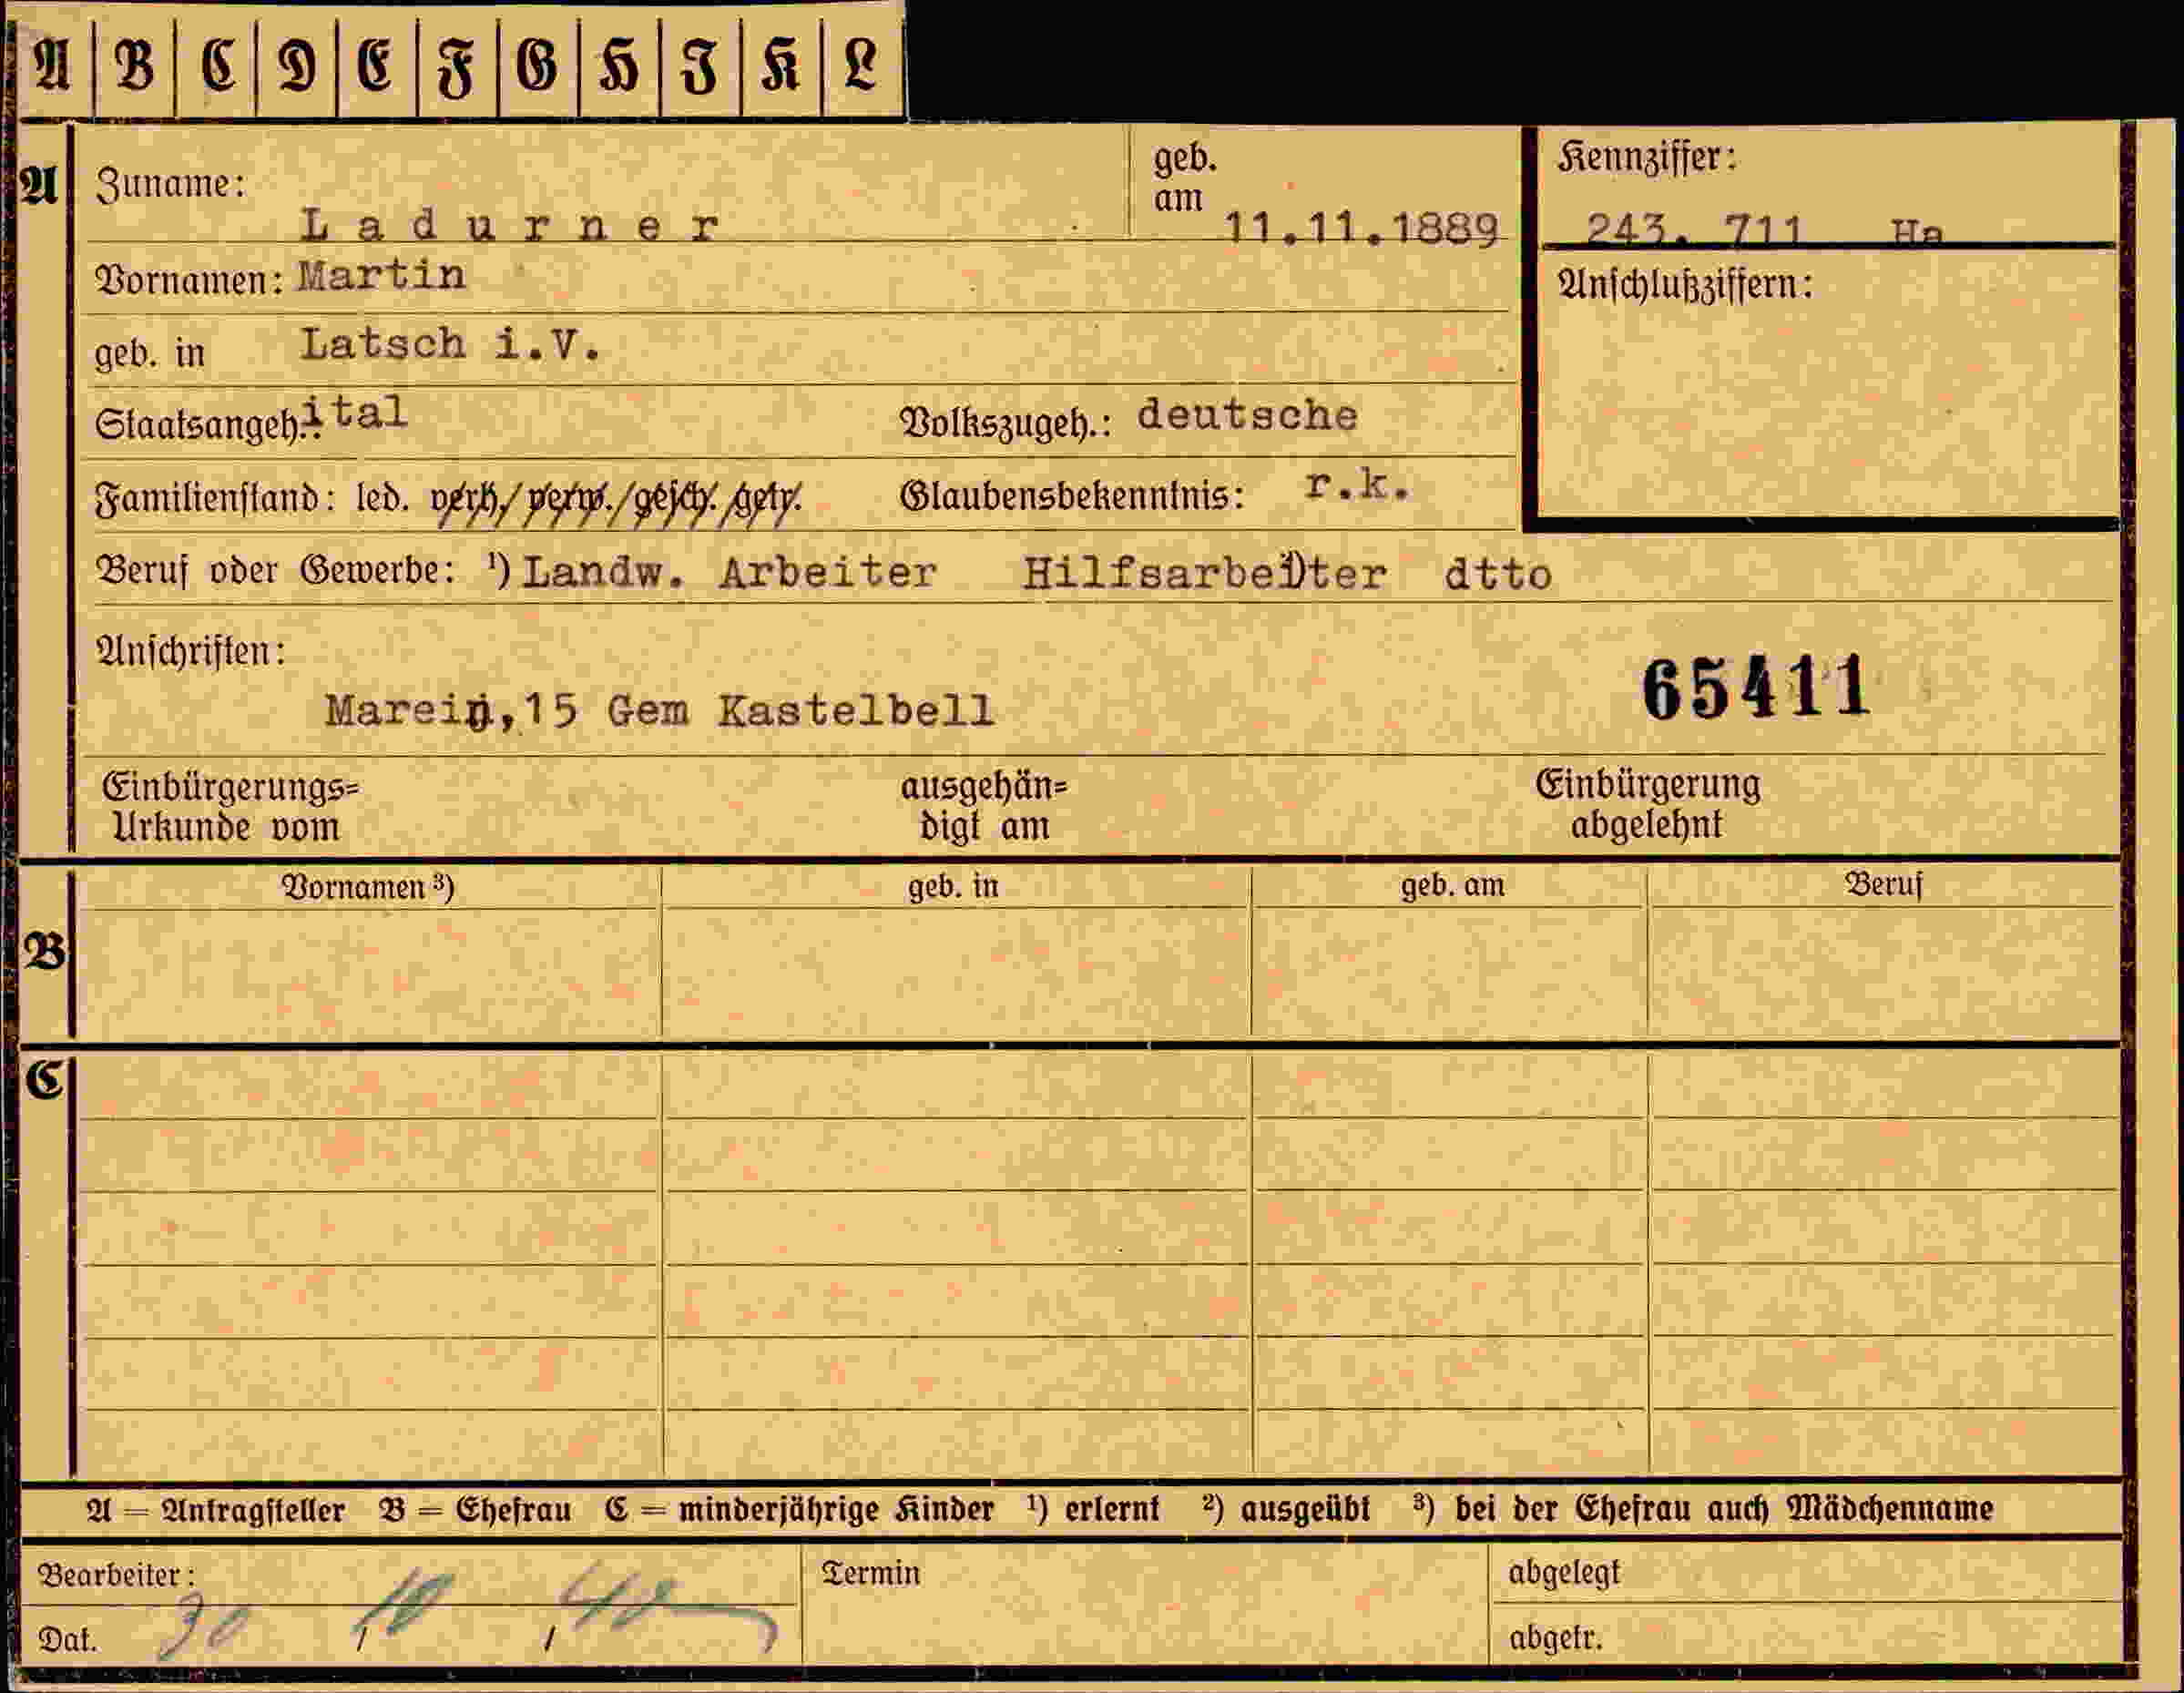 A B C D E F G H I K L
A Zuname: Ladurner geb. am 11.11.1889 Kennziffer: 243. 711 Ha
Vornamen: Martin Anschlußziffern:
geb. in Latsch i.V.
Staatsangeh.: ital Volkszugeh.: deutsche
Familienstand: led. verh./verw./gesch./getr. Glaubensbekenntnis: r.k.
Beruf oder Gewerbe: ¹) Landw. Arbeiter ²) Hilfsarbeiter dtto
Anschriften:
Marein,15 Gem Kastelbell 65411
Einbürgerungs= ausgehän= Einbürgerung
Urkunde vom digt am abgelehnt
Vornamen ³) geb. in geb. am Beruf
B
C
A = Antragsteller B = Ehefrau C = minderjährige Kinder ¹) erlernt ²) ausgeübt ³) bei der Ehefrau auch Mädchenname
Bearbeiter: Termin abgelegt
Dat. 30 / 10 / 40 abgetr.